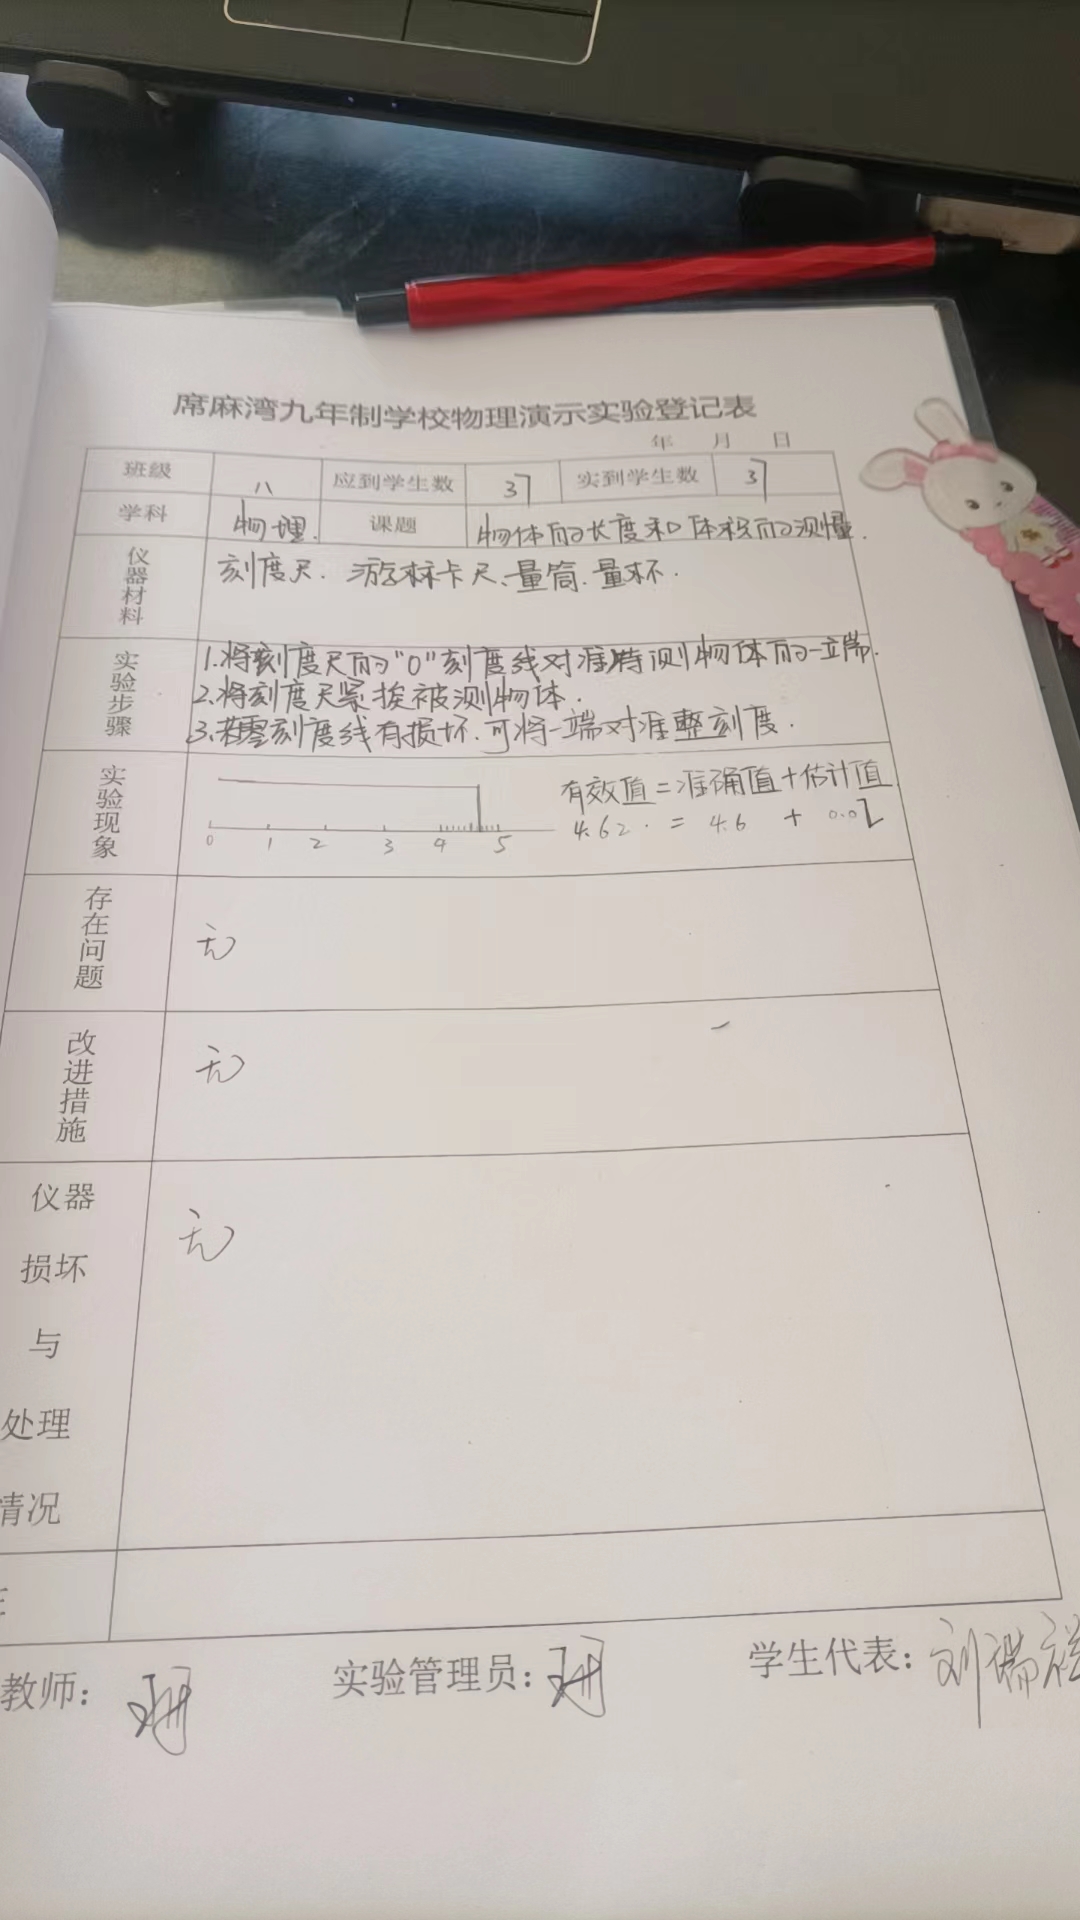 席麻湾九年制学校物理演示实验登记表
年 月 日
班级 八 应到学生数 37 实到学生数 37
学科 物理. 课题 物体的长度和体积的测量.
仪器材料 刻度尺. 游标卡尺、量筒. 量杯.
实验步骤
1.将刻度尺的"0"刻度线对准待测物体的一端.
2.将刻度尺紧挨被测物体.
3.若零刻度线有损坏.可将一端对准整刻度.
实验现象
有效值=准确值+估计值.
4.62. = 4.6 + 0.02
0 1 2 3 4 5
存在问题 无
改进措施 无
仪器 无
损坏
与
处理
情况
教师: 实验管理员: 学生代表: 刘瑞祥